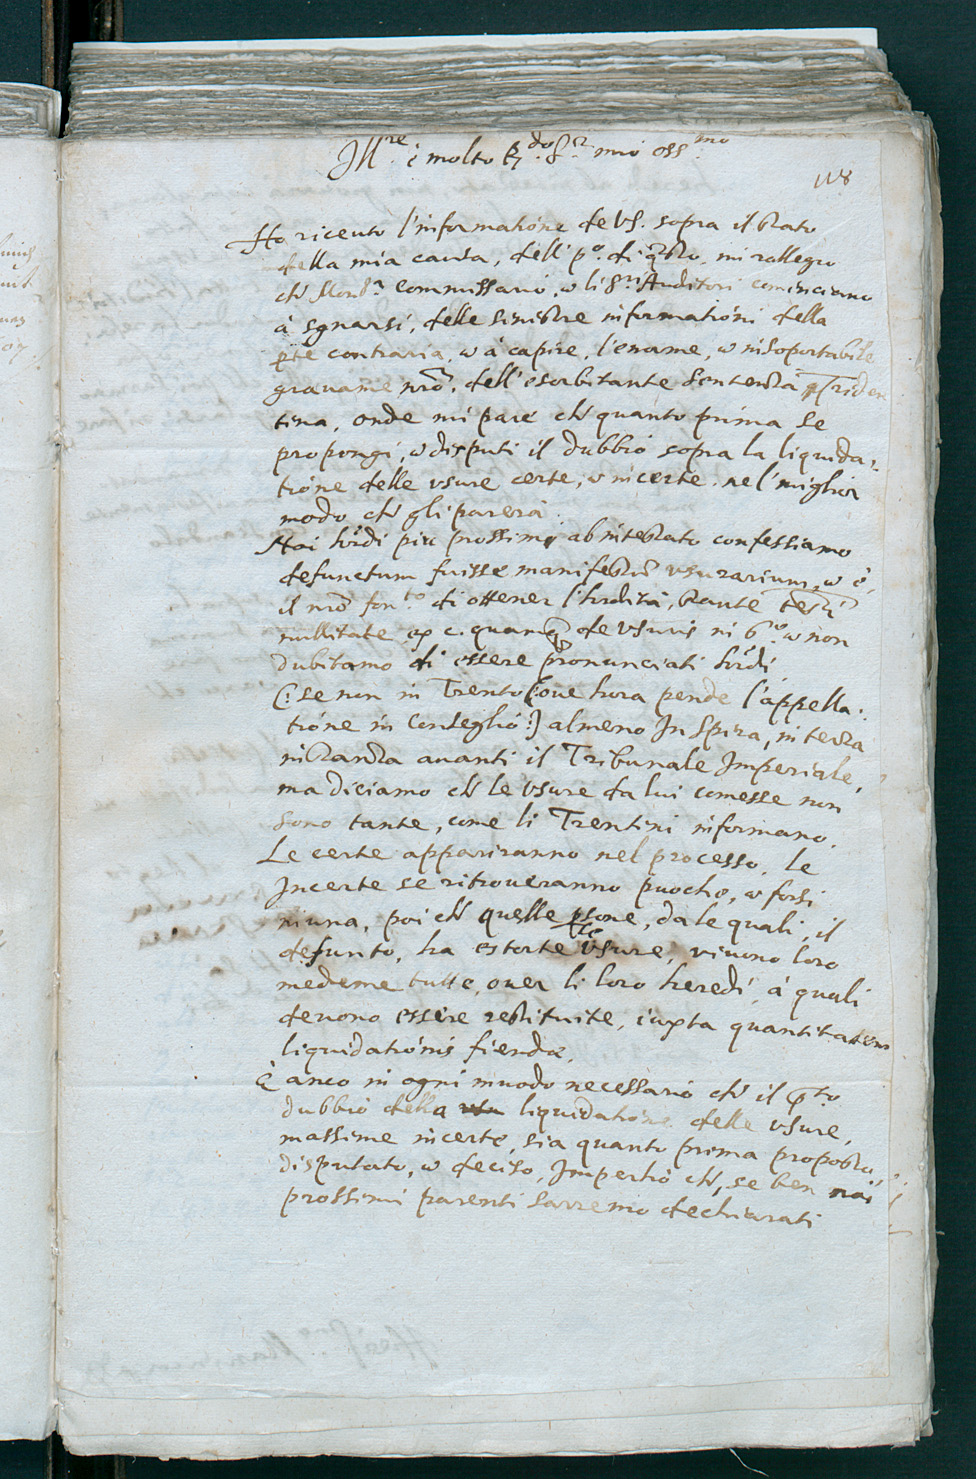 Ill.re è molto R.do S.r mio oss.mo
118
Ho riceuto l'informatione de VS. sopra il stato
della mia causa, dell' p.o di q̃sto, mi rallegro
ch' Mons.r Commissario, et li S.ri Auditori cominciano
à sgnarsi, delle sinistre informationi della
p̃te contraria, et à capire, l'enorme, et insoportabile
grauame nrõ, dell' esorbitante sentenza Triden
tina, onde mi pare ch' quanto prima se
propongi, et disputi il dubbio sopra la liquida-
tione delle vsure certe, et incerte. nel' miglior
modo ch' gli parerà.
Noi hr̃di piu prossimi ab intestato confessiamo
defunctum fuisse manifestũ vsurarium, et è,
il nrõ fon.to di ottener l'hrdità, stante testi
nullitate ex c. quanq̃ de vsuris in 6.o et non
dubitamo di essere pronunciati hr̃di
(: se non in Trento (: oue hora pende l'appella:
tione in Conseglio :) almeno In Spira, in terza
instanza auanti il Tribunale Imperiale,
ma diciamo ch' le vsure da lui comesse non
sono tante, come li Trentini informano.
Le certe appariranno nel processo, le
Incerte se ritroueranno puoche, et forsi
niuna, poi ch' quelle p̃sone, da le quali, il
defunto, ha estorte vsure, viuono loro
medeme tutte, ouer li loro heredi, à quali
deuono essere restituite, iuxta quantitatem
liquidationis fiendæ.
È anco in ogni muodo necessario ch' il p̃.to
dubbio della vsu liquidatione delle vsure,
massime incerte, sia quanto prima proposto,
disputato, et deciso, Imperhò ch', se ben noi
prossimi parenti sarremo dechiarati